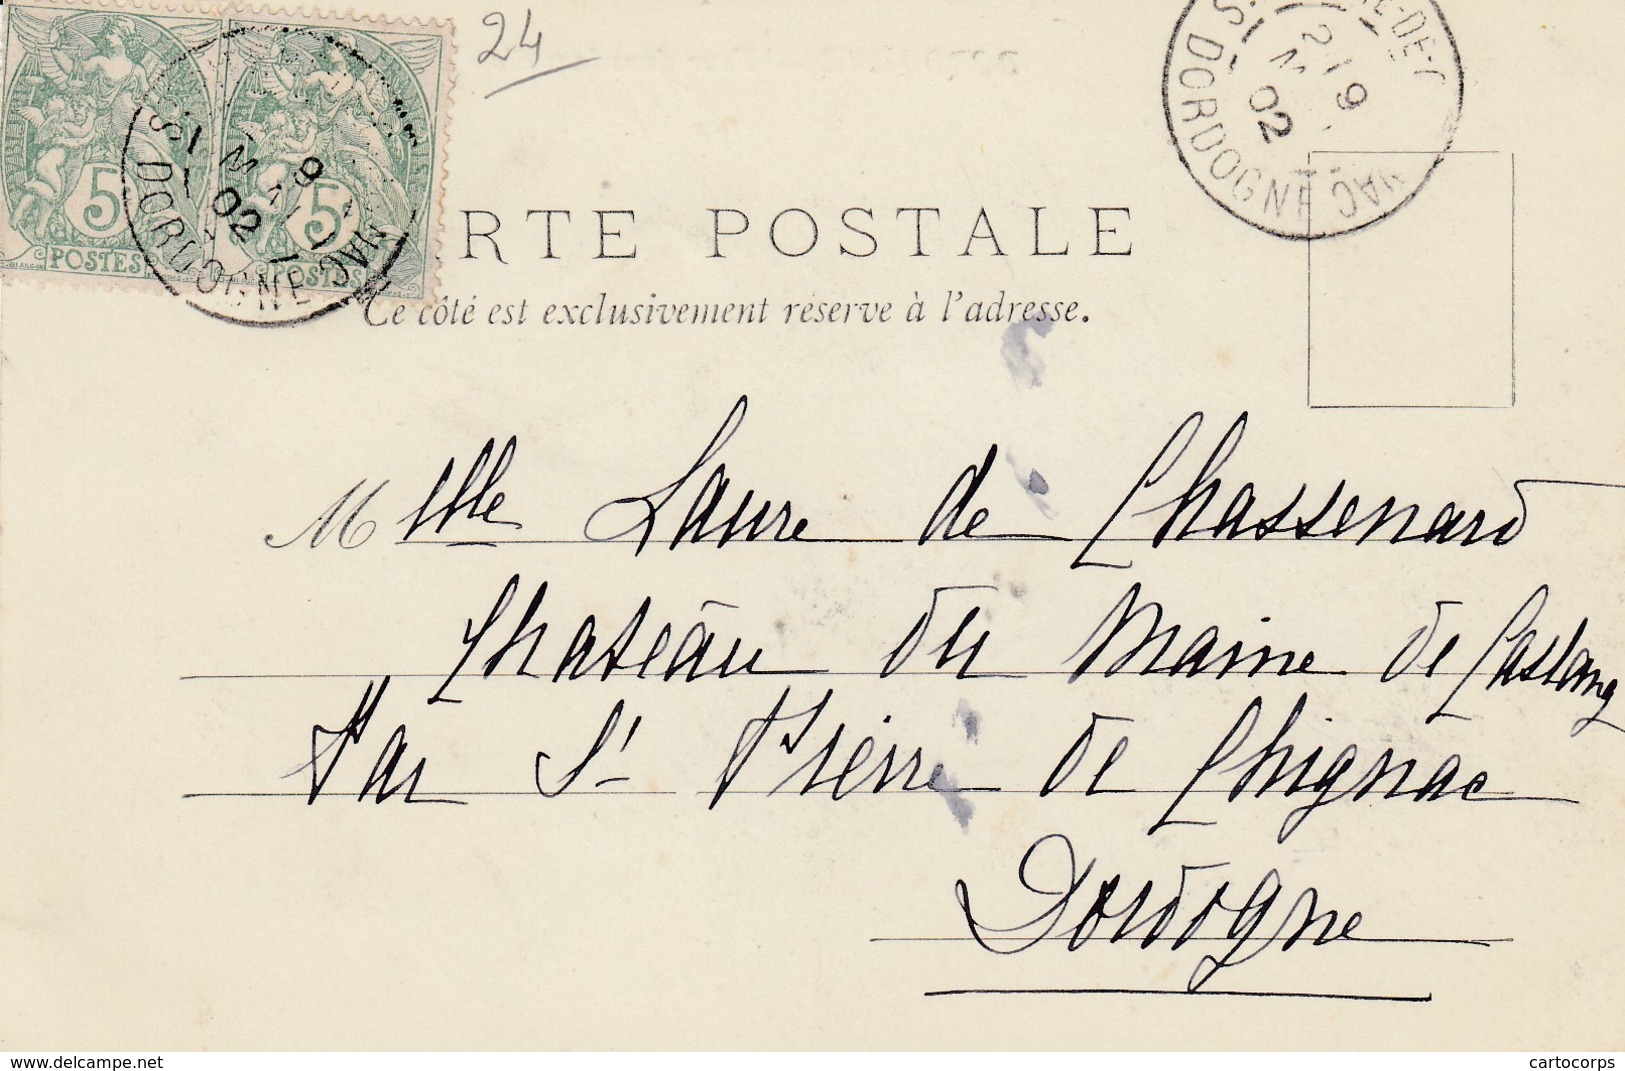 24
5 5
POSTES POSTES
DORDOGNE 02
2-19 02 DORDOGNE
RTE POSTALE
Ce côté est exclusivement réservé à l'adresse.
Mlle Laure de Chassenard
Chateau du Maine de Castang
Par St Pierre de Chignac
Dordogne
www.delcampe.net cartocorps